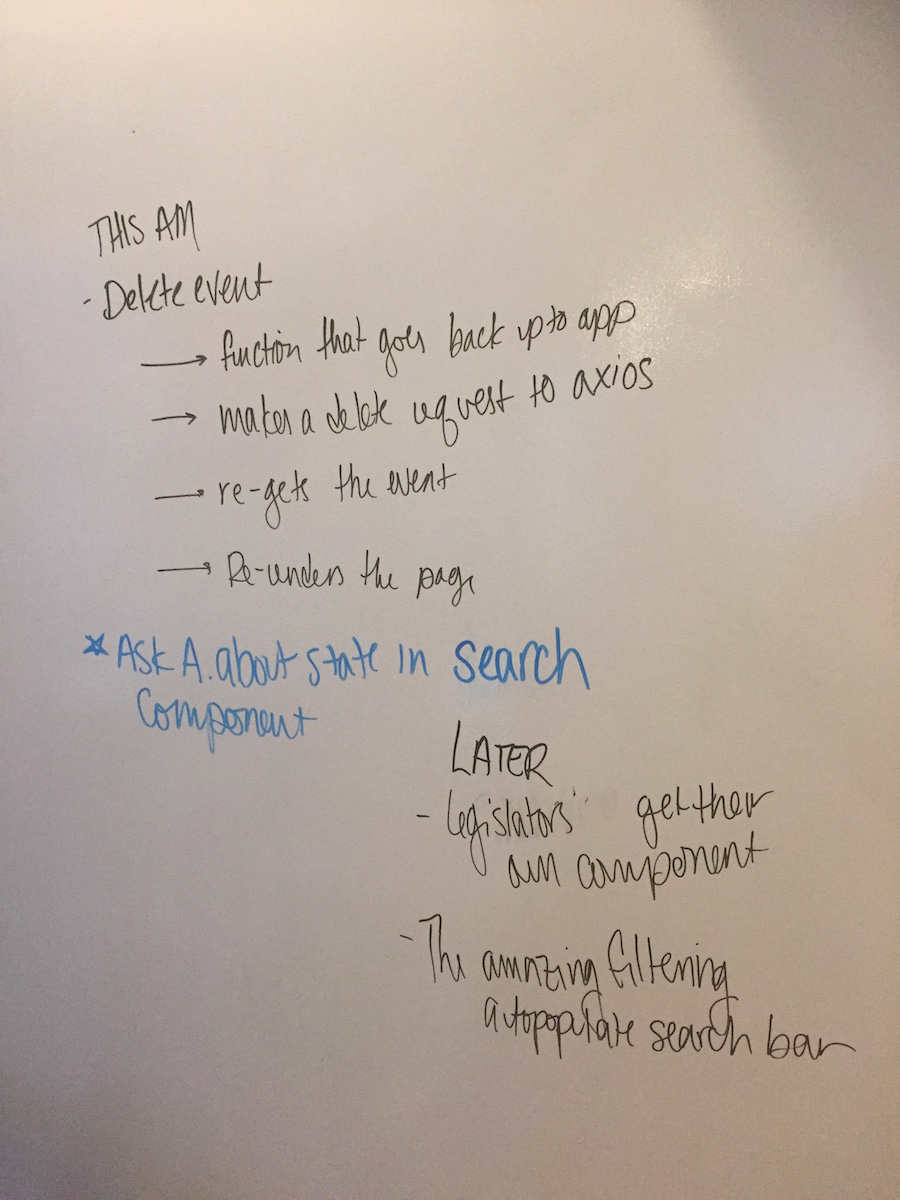 THIS AM
- Delete event
→ function that goes back up to app
→ makes a delete request to axios
→ re-gets the event
→ Re-renders the page
* Ask A. about state in search
component
LATER
- legislators get their
own component
- The amazing filtering
autopopulate search bar